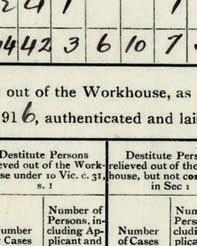 442 3 6 10 7
out of the Workhouse, as
916, authenticated and lai
Destitute Persons
eved out of the Work-
se under 10 Vic. c. 31,
s. 1
Destitute Pers
relieved out of the
house, but not cos
in Sec 1
umber
Cases
Number of
Persons, in-
cluding Ap-
plicant and
Number
of Cases
Num
Pers
cludi
plica